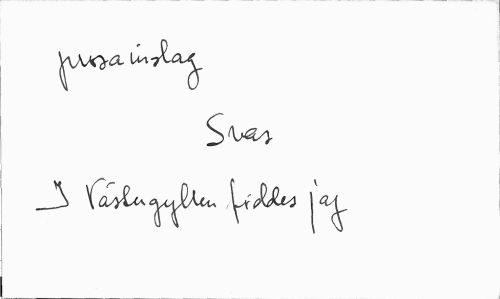 prosainslag
Svar
I Västergyllen föddes jag